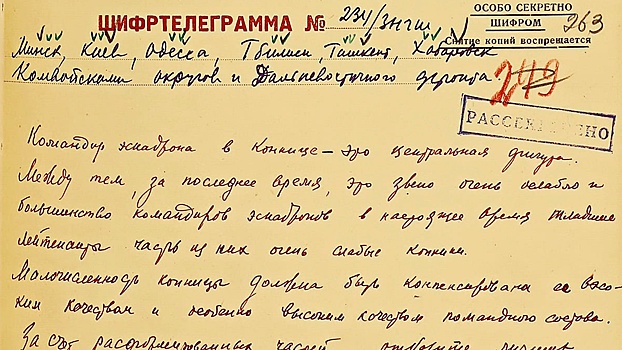 ОСОБО СЕКРЕТНО
ШИФРОМ
Снятие копий воспрещается
263
ШИФРТЕЛЕГРАММА № 234/зн гш
Минск, Киев, Одесса, Тбилиси, Ташкент, Хабаровск
Командующим округов и Дальневосточного фронта
249
РАССЕКРЕЧЕНО
Командир эскадрона в коннице – это центральная фигура.
Между тем, за последнее время, это звено очень ослабло и
большинство командиров эскадронов в настоящее время младшие
лейтенанты часть из них очень слабые конники.
Малочисленность конницы должна быть компенсирована ее высо-
ким качеством и особенно высоким качеством командного состава.
За счет расформированных частей